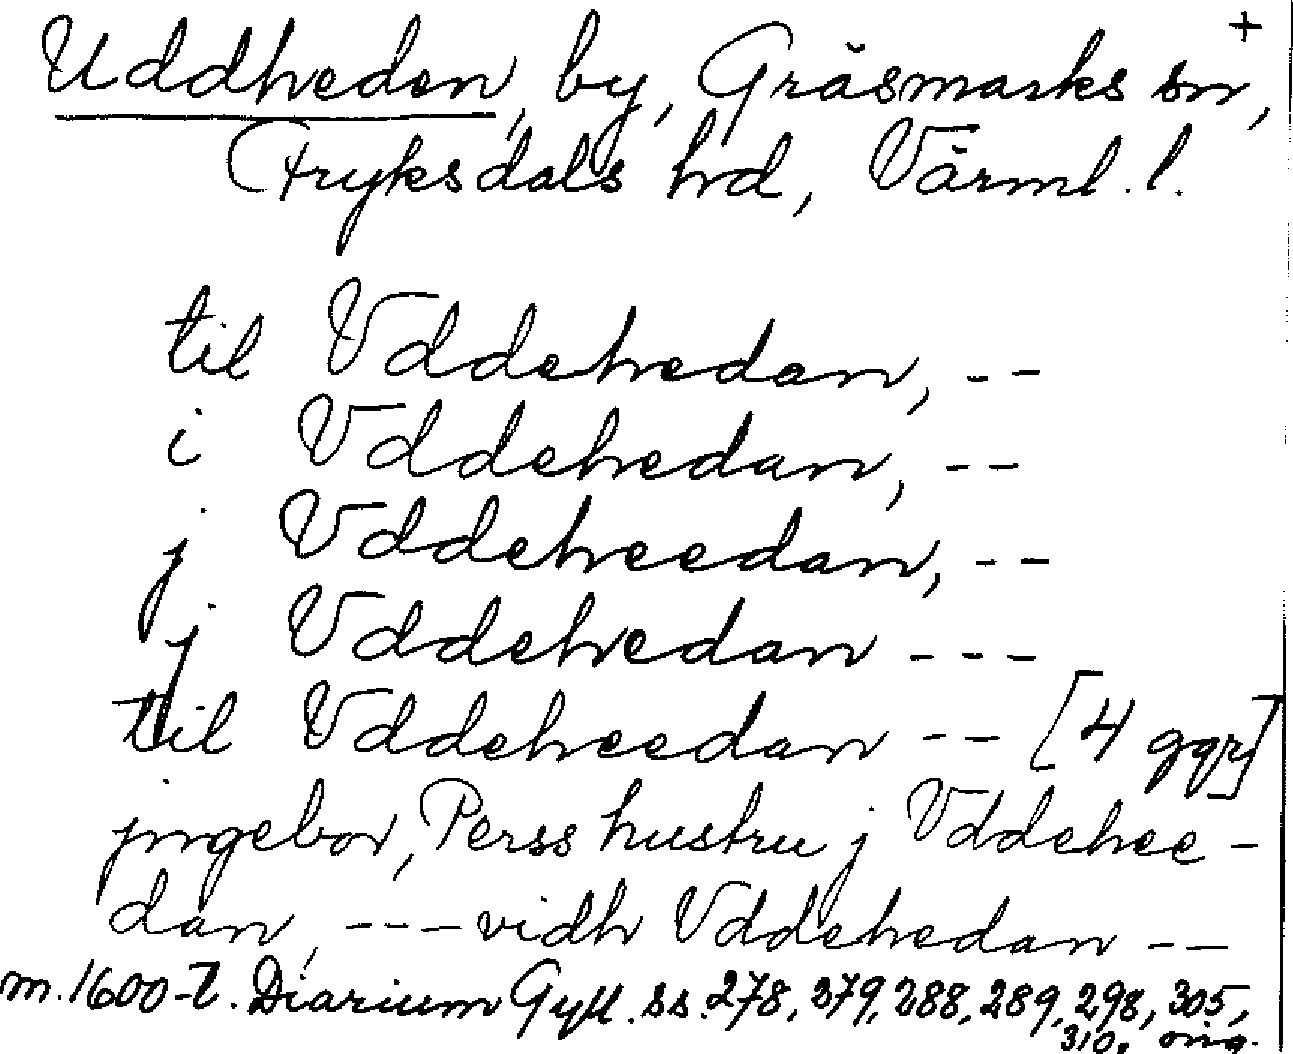 +
Uddheden, by, Gräsmarks sn,
Fryksdals hd, Värml. l.
til Vddehedan, --
i Vddehedan, --
j Vddeheedan, --
j Vddehedan ---
til Vddeheedan -- [4 ggr]
jngebor, Perss hustru j Vddehee-
dan, --- vidh Vddehedan --
m. 1600-t. Diarium Gyll. ss. 278, 379, 288, 289, 298, 305,
310. orig.